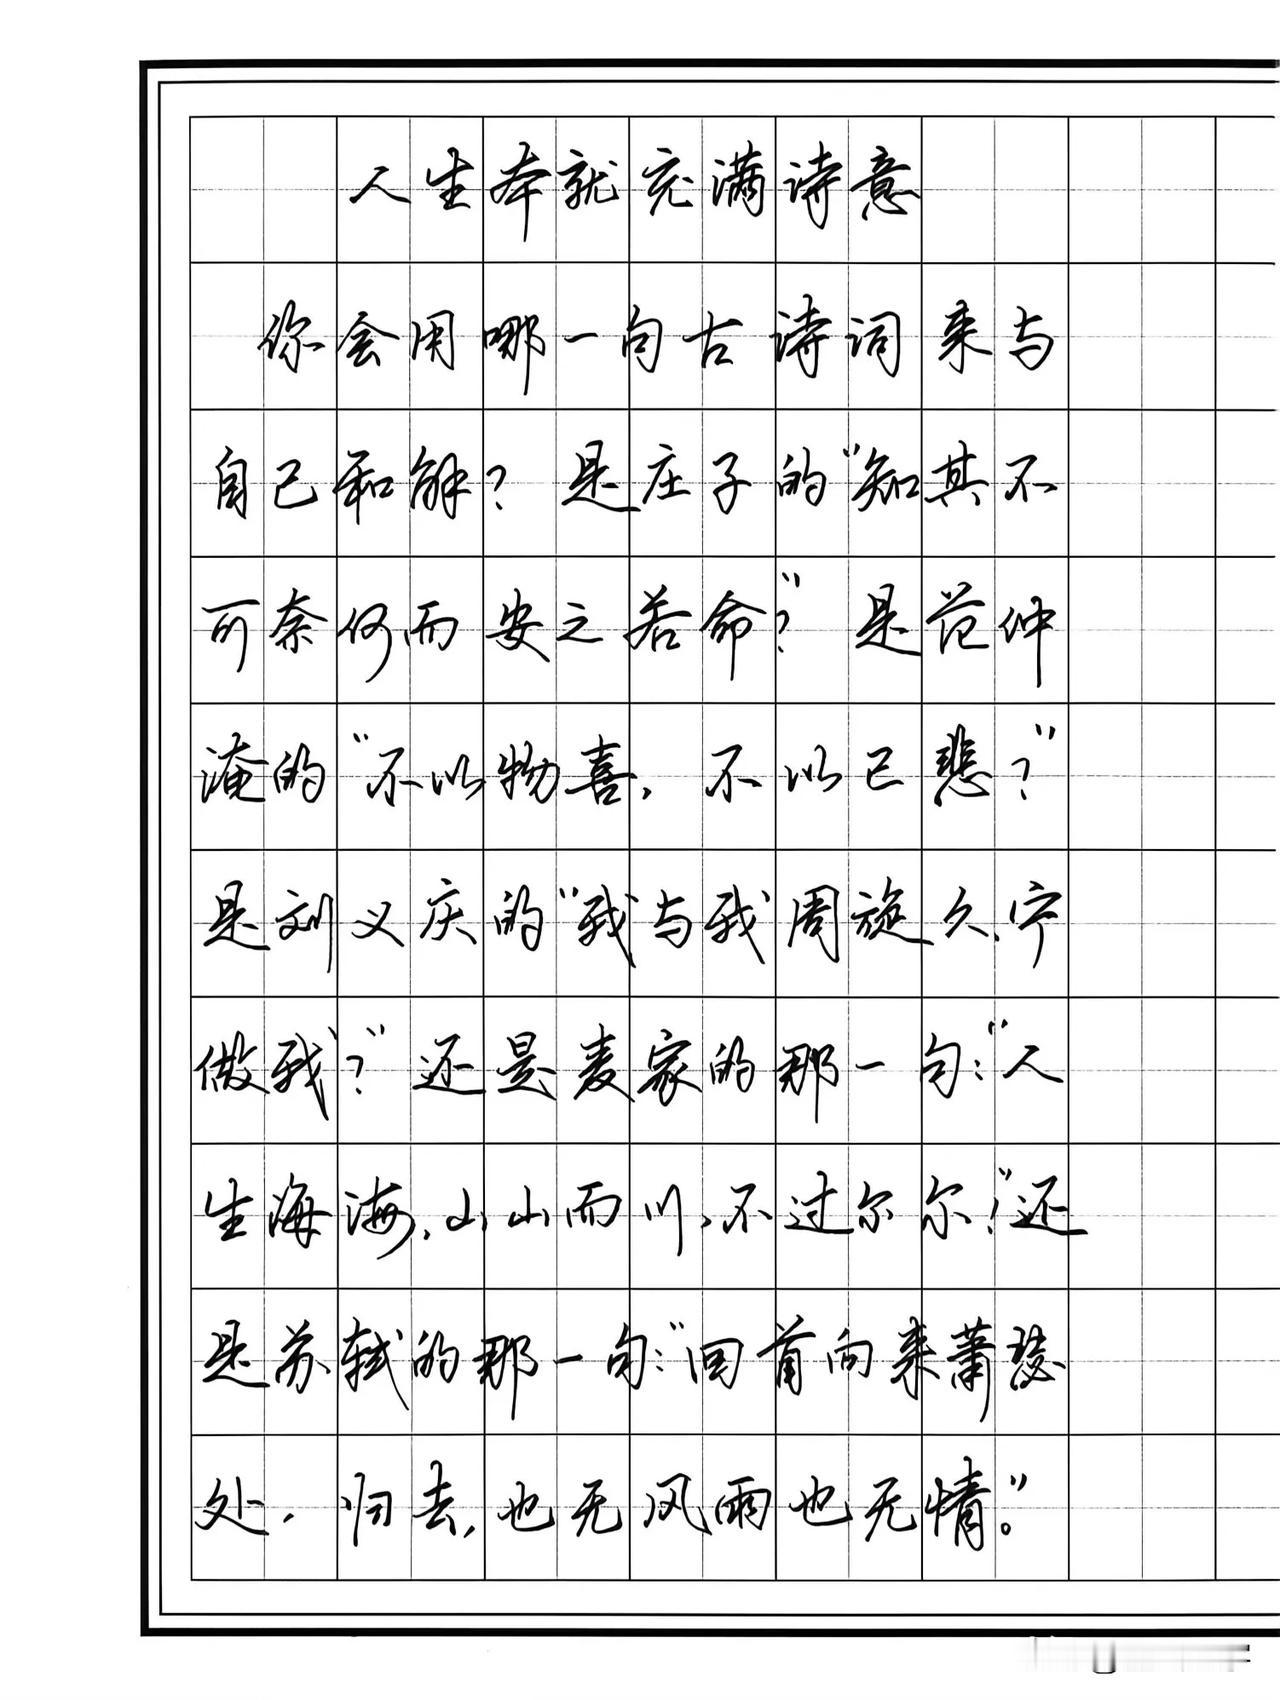 人生本就充满诗意
你会用哪一句古诗词来与
自己和解？是庄子的“知其不
可奈何而安之若命？”是范仲
淹的“不以物喜，不以己悲？”
是刘义庆的“我与我周旋久，宁
做我？”还是麦家的那一句：“人
生海海，山山而川，不过尔尔！”还
是苏轼的那一句：“回首向来萧瑟
处，归去，也无风雨也无情。”